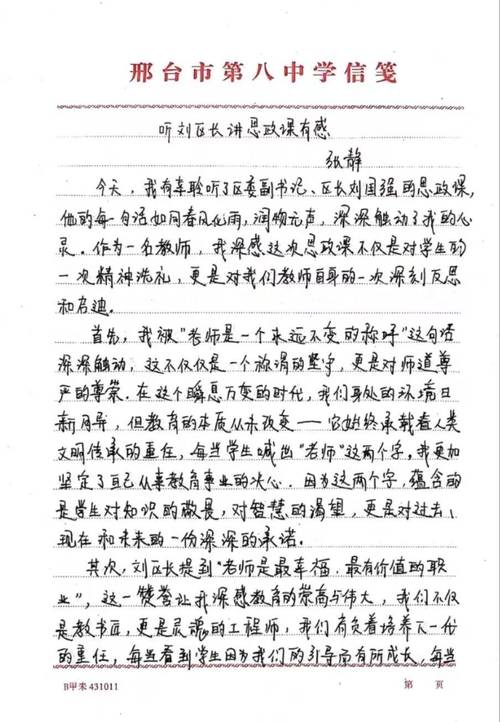 邢台市第八中学信笺
听刘区长讲思政课有感
张静
今天，我有幸聆听了区委副书记、区长刘国强的思政课，
他的每一句话如同春风化雨，润物无声，深深触动了我的心
灵。作为一名教师，我深感这次思政课不仅是对学生的
一次精神洗礼，更是对我们教师自身的一次深刻反思
和启迪。
首先，我被“老师是一个永远不变的称呼”这句话
深深触动，这不仅仅是一个称谓的坚守，更是对师道尊
严的尊崇。在这个瞬息万变的时代，我们身处的环境日
新月异，但教育的本质从未改变——它始终承载着人类
文明传承的重任，每当学生喊出“老师”这两个字，我更加
坚定了自己从事教育事业的决心。因为这两个字，蕴含的
是学生对知识的敬畏，对智慧的渴望，更是对过去、
现在和未来的一份深深的承诺。
其次，刘区长提到“老师是最幸福、最有价值的职
业”，这一赞誉让我深感教育的崇高与伟大，我们不仅
是教书匠，更是灵魂的工程师，我们有负着培养下一代
的重任，每当看到学生因为我们的引导而有所成长，每当
B甲未 431011
第 页